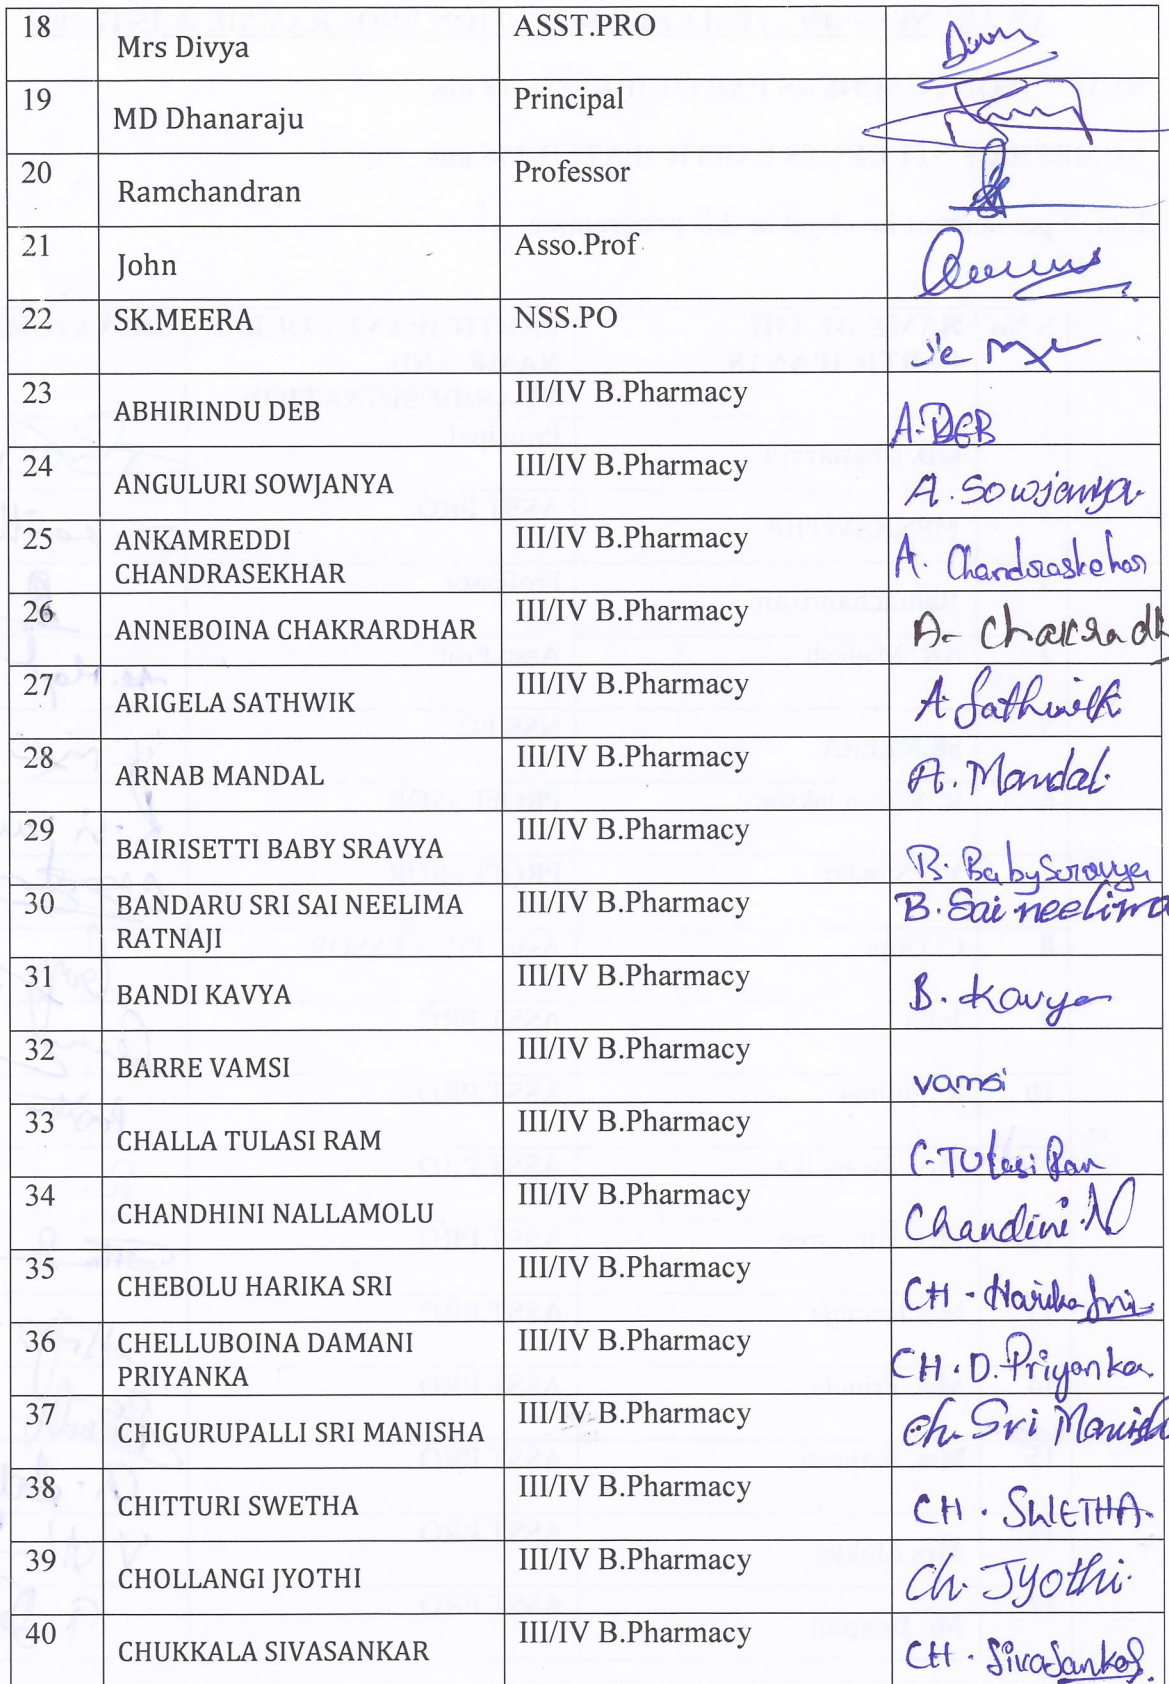 18 Mrs Divya ASST.PRO
19 MD Dhanaraju Principal
20 Ramchandran Professor
21 John Asso.Prof
22 SK.MEERA NSS.PO
23 ABHIRINDU DEB III/IV B.Pharmacy A.DEB
24 ANGULURI SOWJANYA III/IV B.Pharmacy A. Sowjanya
25 ANKAMREDDI CHANDRASEKHAR III/IV B.Pharmacy A. Chandraskehar
26 ANNEBOINA CHAKRARDHAR III/IV B.Pharmacy A- Chakradh
27 ARIGELA SATHWIK III/IV B.Pharmacy A Sathwik
28 ARNAB MANDAL III/IV B.Pharmacy A. Mandal.
29 BAIRISETTI BABY SRAVYA III/IV B.Pharmacy B. Baby Sravya
30 BANDARU SRI SAI NEELIMA RATNAJI III/IV B.Pharmacy B. Sai neelima
31 BANDI KAVYA III/IV B.Pharmacy B. Kavya
32 BARRE VAMSI III/IV B.Pharmacy vamsi
33 CHALLA TULASI RAM III/IV B.Pharmacy C.Tulasi Ram
34 CHANDHINI NALLAMOLU III/IV B.Pharmacy Chandini.N
35 CHEBOLU HARIKA SRI III/IV B.Pharmacy CH - Harika Sri
36 CHELLUBOINA DAMANI PRIYANKA III/IV B.Pharmacy CH. D. Priyanka
37 CHIGURUPALLI SRI MANISHA III/IV B.Pharmacy Ch. Sri Manish
38 CHITTURI SWETHA III/IV B.Pharmacy CH. SWETHA.
39 CHOLLANGI JYOTHI III/IV B.Pharmacy Ch. Jyothi.
40 CHUKKALA SIVASANKAR III/IV B.Pharmacy CH. Sivasankar.